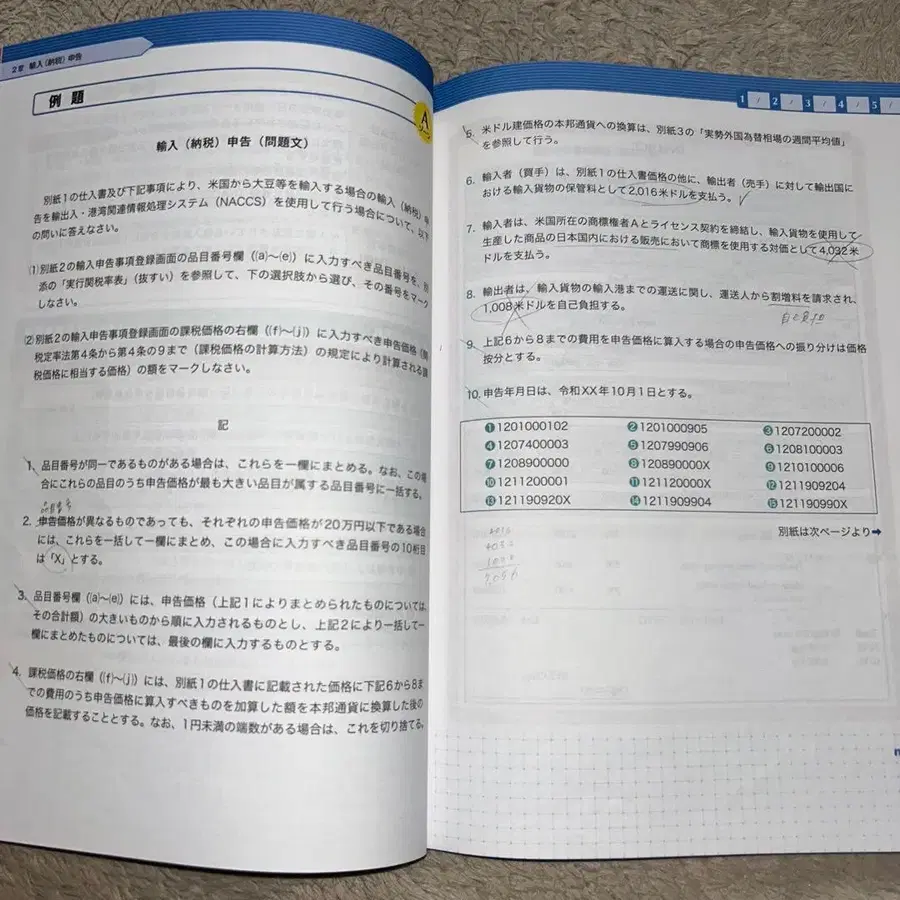 2章 輸入(納税)申告
例 題
A
輸入(納税)申告(問題文)
別紙1の仕入書及び下記事項により、米国から大豆等を輸入する場合の輸入(納税)申
告を輸出入・港湾関連情報処理システム(NACCS)を使用して行う場合について、以下
の問いに答えなさい。
(1)別紙2の輸入申告事項登録画面の品目番号欄((a)~(e))に入力すべき品目番号を、別
添の「実行関税率表」(抜すい)を参照して、下の選択肢から選び、その番号をマーク
しなさい。
(2)別紙2の輸入申告事項登録画面の課税価格の右欄((f)~(j))に入力すべき申告価格(関
税定率法第4条から第4条の9まで(課税価格の計算方法)の規定により計算される課
税価格に相当する価格)の額をマークしなさい。
記
1. 品目番号が同一であるものがある場合は、これらを一欄にまとめる。なお、この場
合にこれらの品目のうち申告価格が最も大きい品目が属する品目番号に一括する。
品目番号
2. 申告価格が異なるものであっても、それぞれの申告価格が20万円以下である場合
には、これらを一括して一欄にまとめ、この場合に入力すべき品目番号の10桁目
は「X」とする。
3. 品目番号欄((a)~(e))には、申告価格(上記1によりまとめられたものについては、
その合計額)の大きいものから順に入力されるものとし、上記2により一括して一
欄にまとめたものについては、最後の欄に入力するものとする。
4. 課税価格の右欄((f)~(j))には、別紙1の仕入書に記載された価格に下記6から8ま
での費用のうち申告価格に算入すべきものを加算した額を本邦通貨に換算した後の
価格を記載することとする。なお、1円未満の端数がある場合は、これを切り捨てる。
1 / 2 / 3 / 4 / 5 /
5. 米ドル建価格の本邦通貨への換算は、別紙3の「実勢外国為替相場の週間平均値」
を参照して行う。
6. 輸入者(買手)は、別紙1の仕入書価格の他に、輸出者(売手)に対して輸出国に
おける輸入貨物の保管料として2,016米ドルを支払う。
7. 輸入者は、米国所在の商標権者Aとライセンス契約を締結し、輸入貨物を使用して
生産した商品の日本国内における販売において商標を使用する対価として4,032米
ドルを支払う。
8. 輸出者は、輸入貨物の輸入港までの運送に関し、運送人から割増料を請求され、
1,008米ドルを自己負担する。
自己負担
9. 上記6から8までの費用を申告価格に算入する場合の申告価格への振り分けは価格
按分とする。
10. 申告年月日は、令和XX年10月1日とする。
❶ 1201000102 ❷ 1201000905 ❸ 1207200002
❹ 1207400003 ❺ 1207990906 ❻ 1208100003
❼ 1208900000 ❽ 120890000X ❾ 1210100006
❿ 1211200001 ⓫ 121120000X ⓬ 1211909204
⓭ 121190920X ⓮ 1211909904 ⓯ 121190990X
別紙は次ページより➡